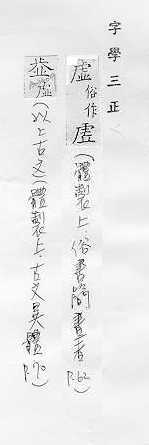 字學三正
虛俗作虗(體製上·俗書簡畫者 P.62)
虛(以上古文)(體製上·古文異體 P.70)